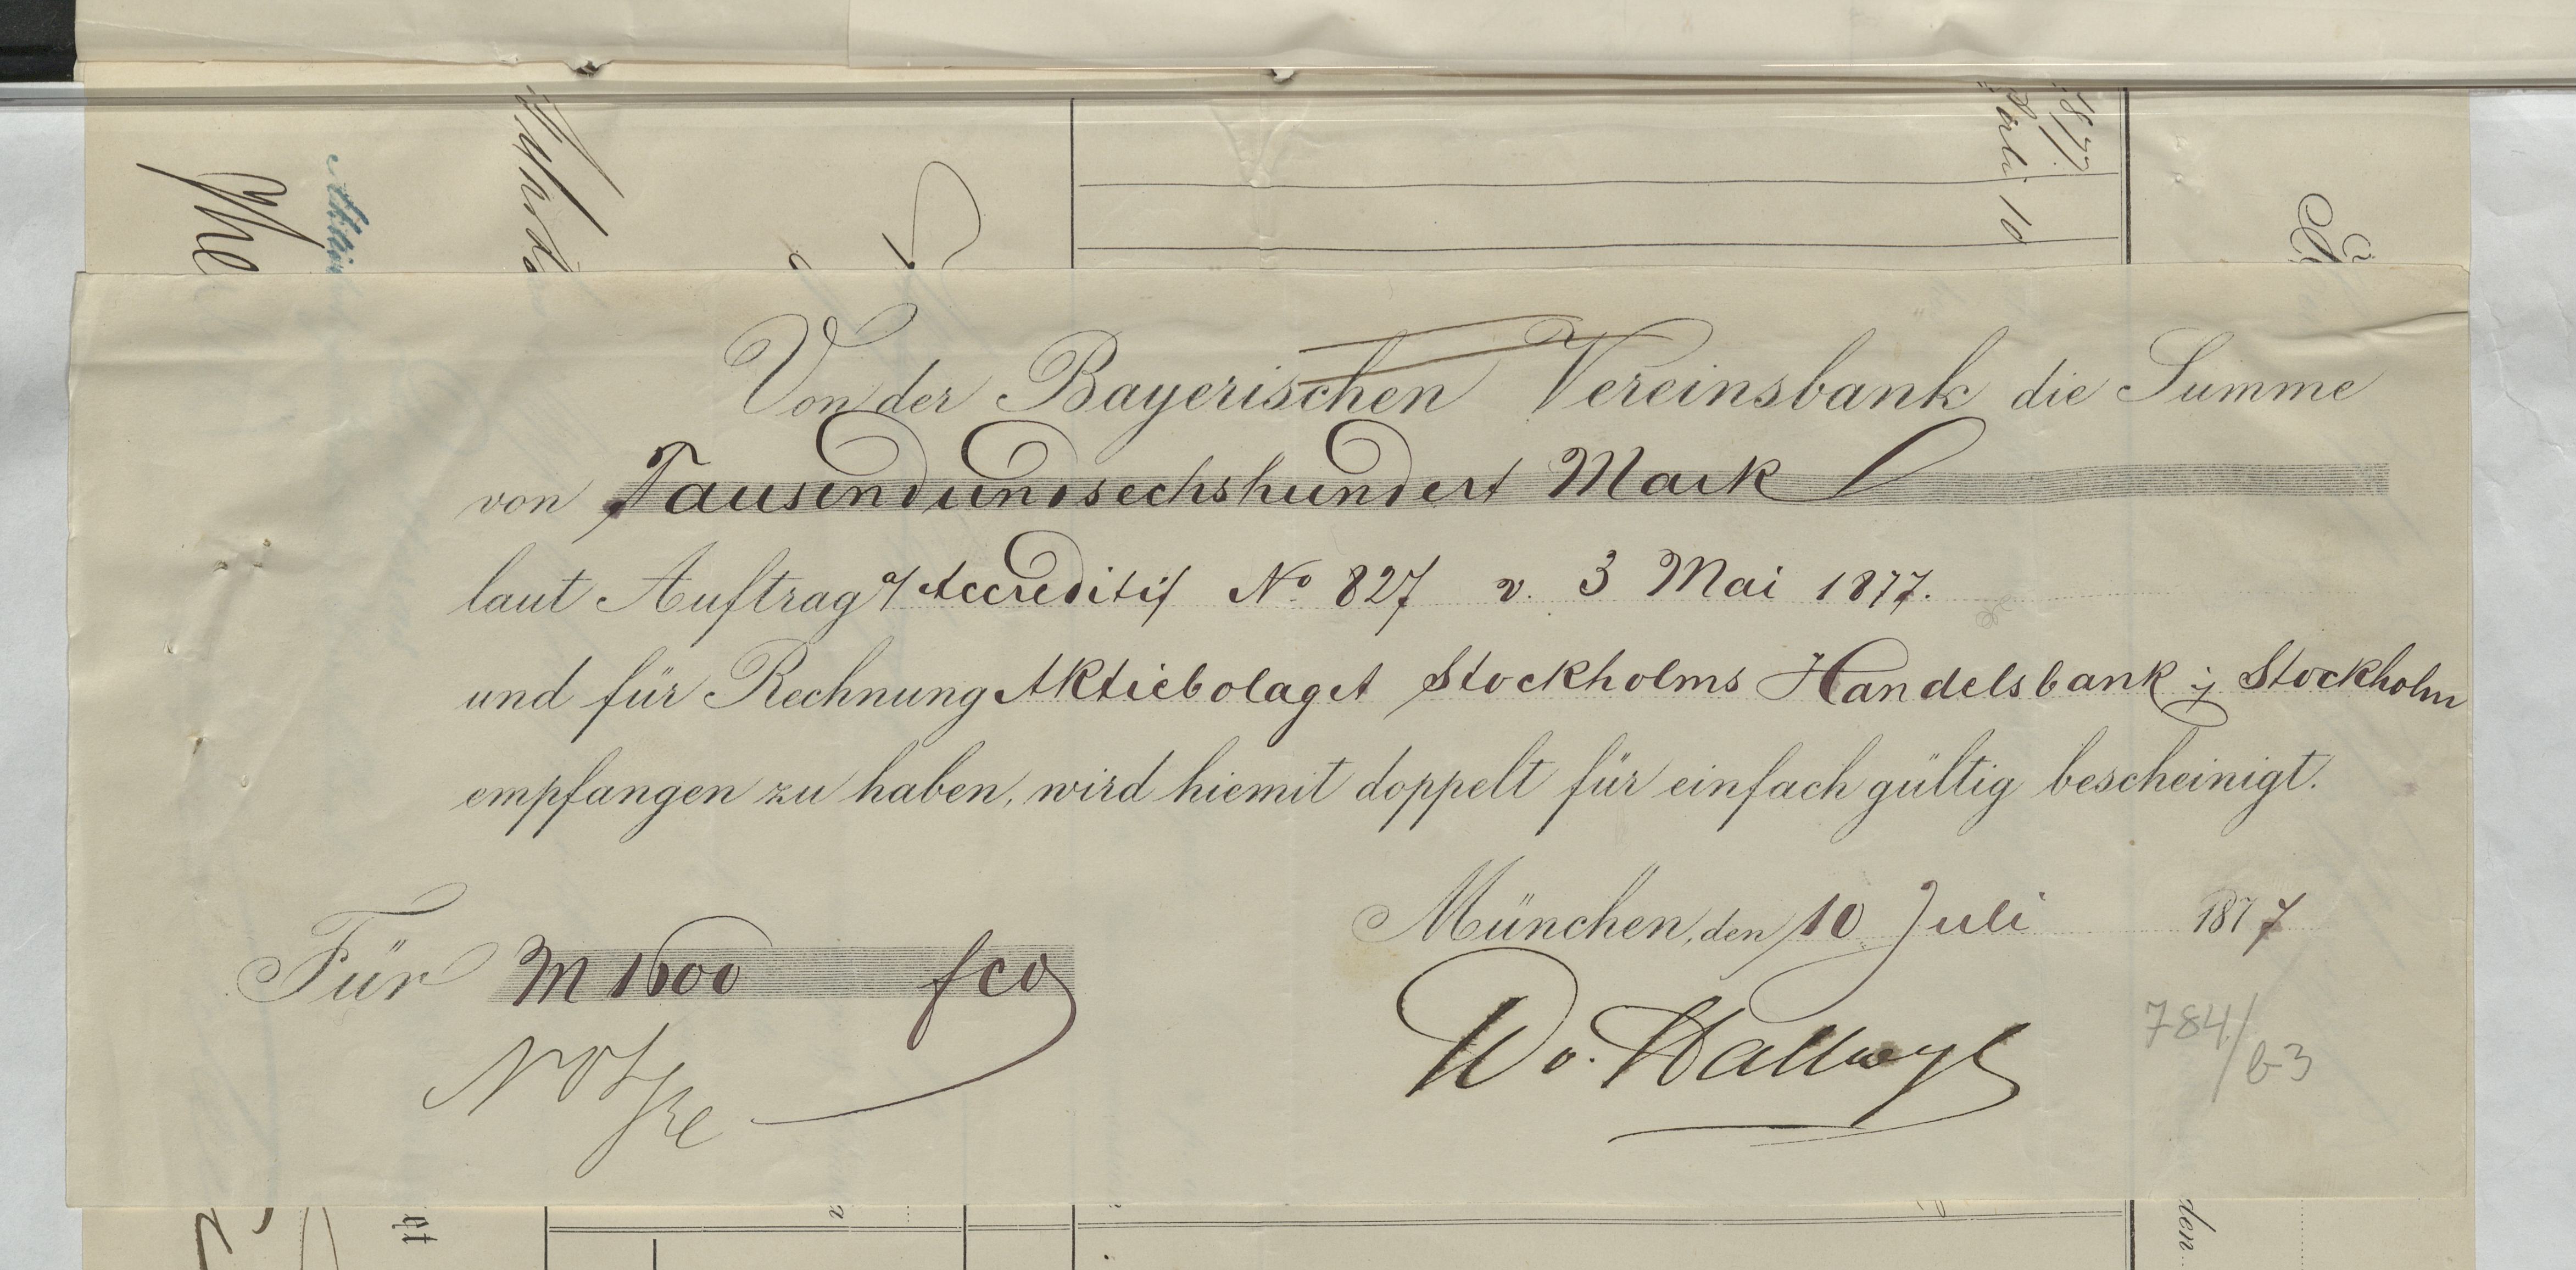 1877.
Juli 10
Von der Bayerischen Vereinsbank die Summe
von Tausendundsechshundert Mark
laut Auftrag a/ Accreditif No 827 v. 3 Mai 1877.
und für Rechnung Aktiebolaget Stockholms Handelsbank i/ Stockholm
empfangen zu haben, wird hiemit doppelt für einfach gültig bescheinigt.
München, den 10 Juli 1877
Für M 1600 fco
W v. Hallwyl
784/
b3
den